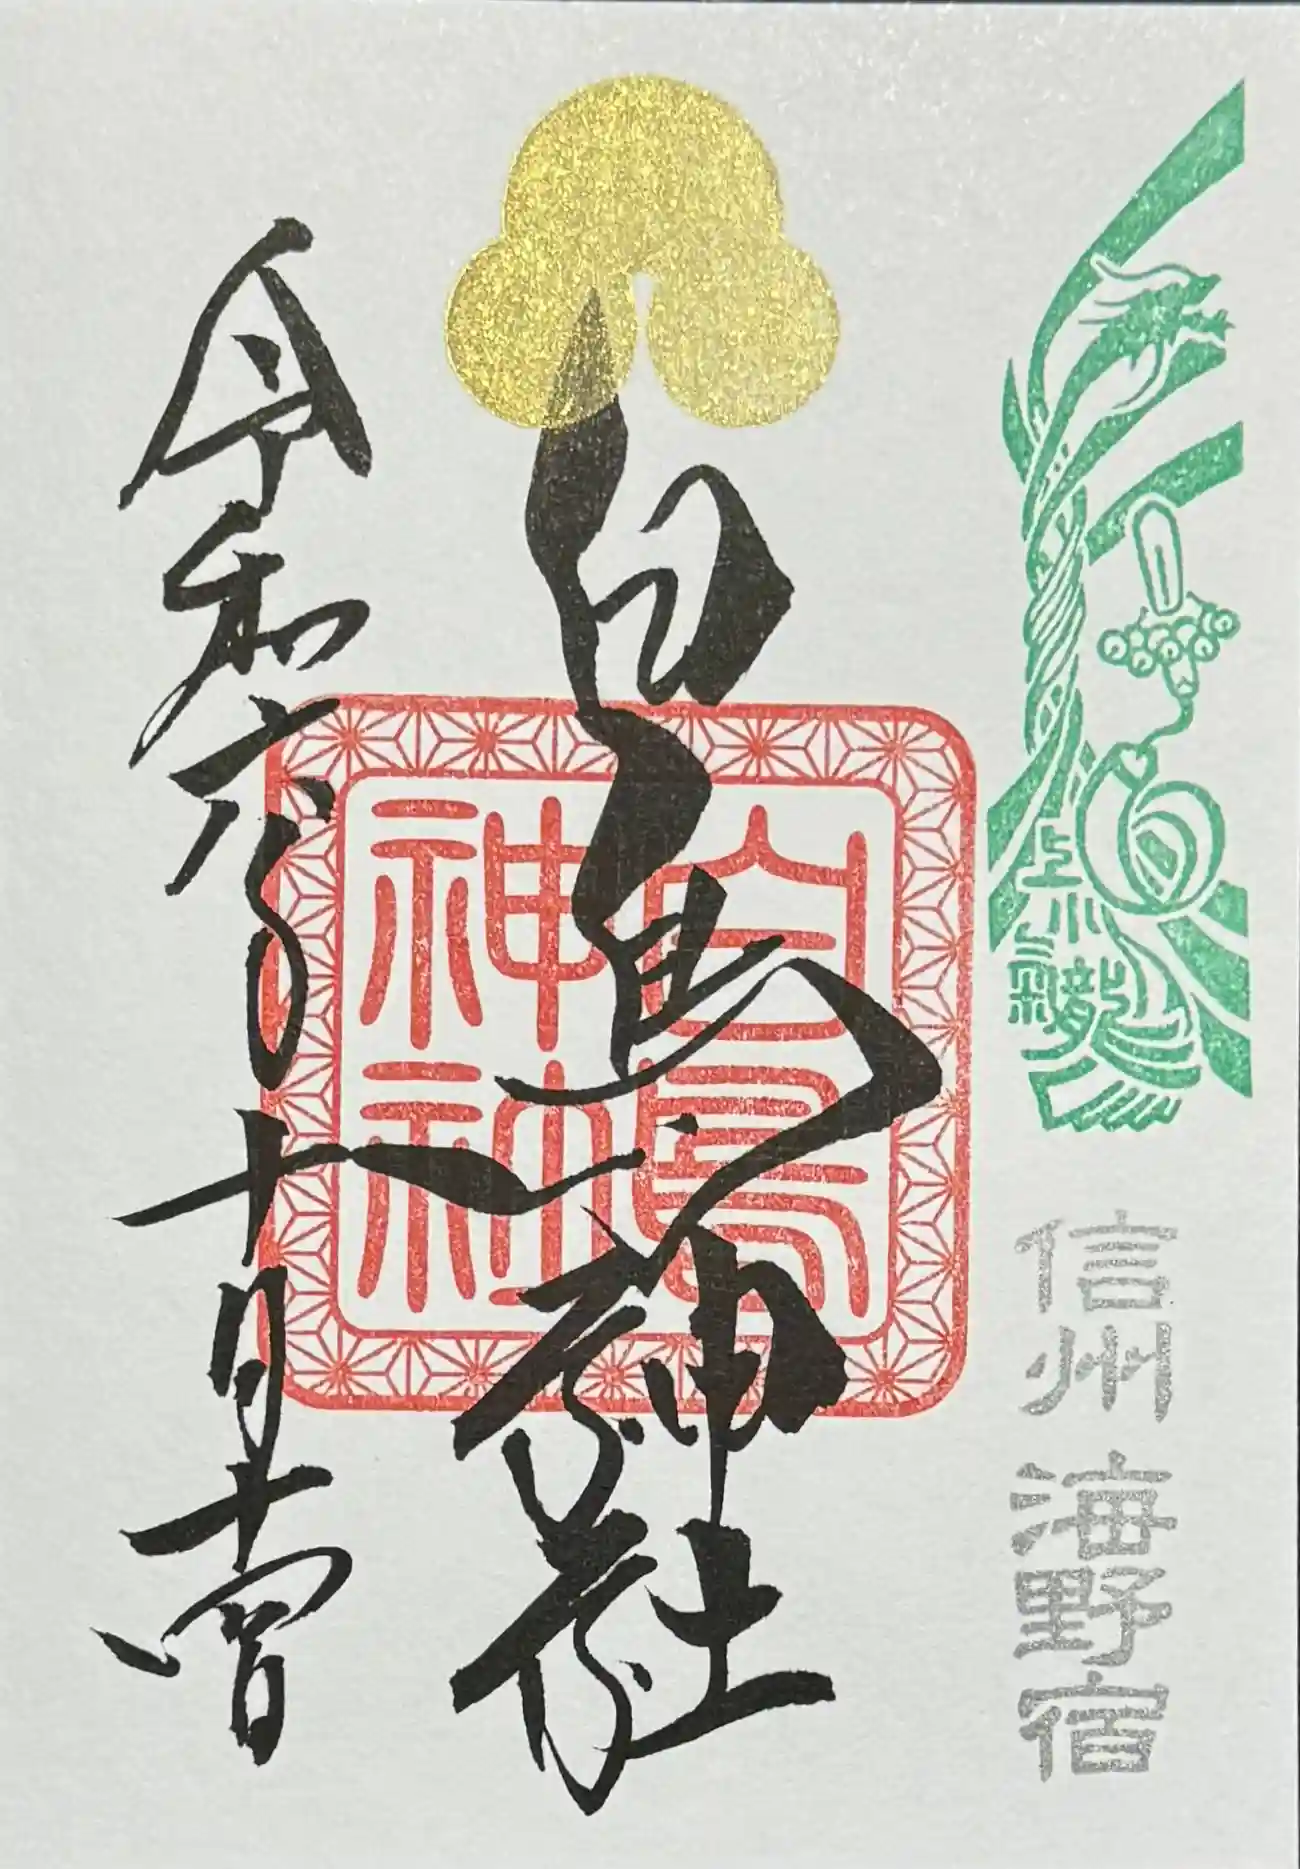 信州 海野宿
白鳥神社
白鳥
神社
令和六年十月十日